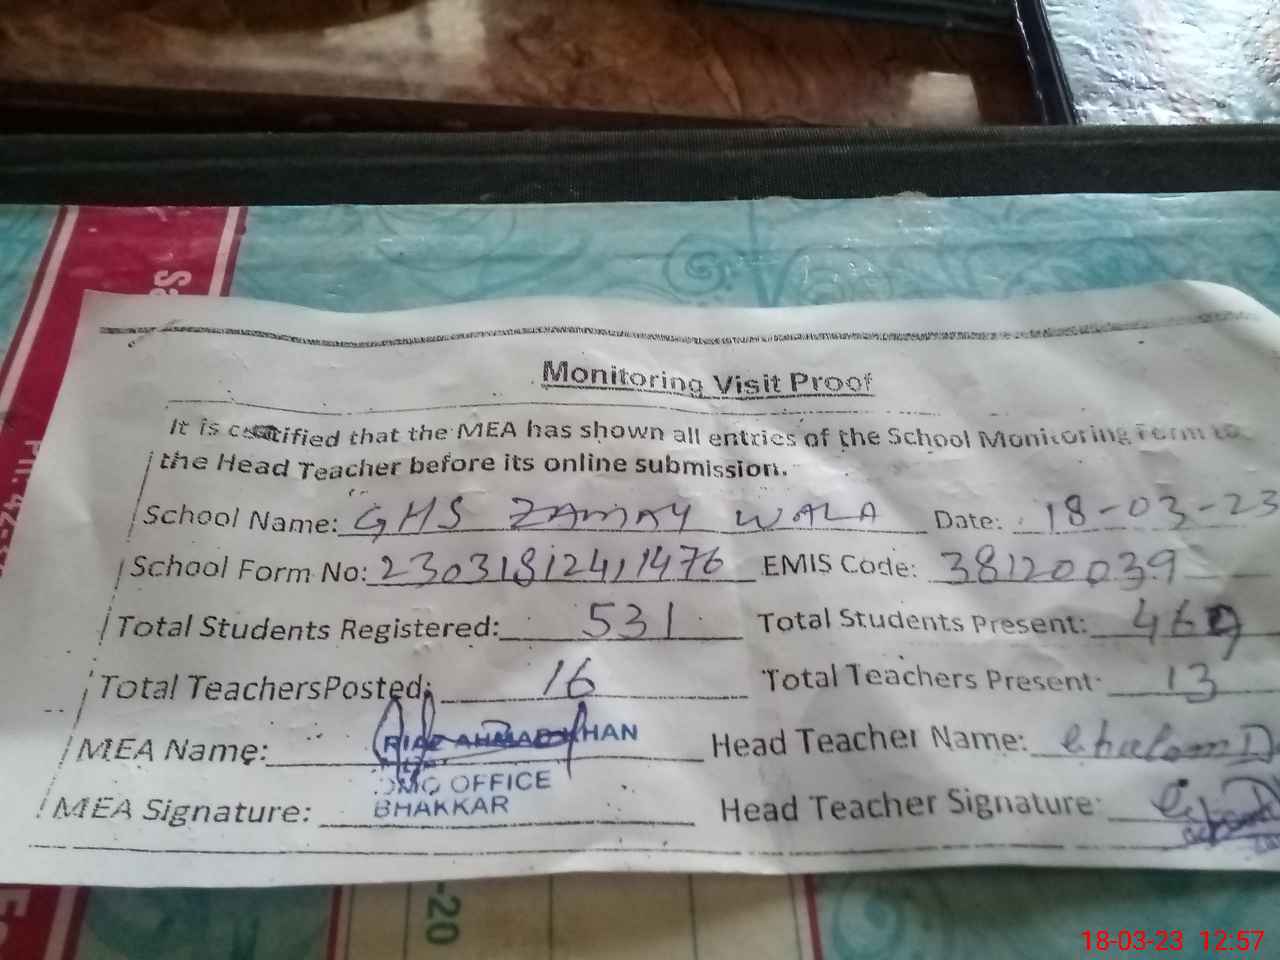 Monitoring Visit Proof
It is certified that the MEA has shown all entries of the School Monitoring Form to
the Head Teacher before its online submission.
School Name: GHS ZAMAY WALA Date: 18-03-23
School Form No: 230318124111476 EMIS Code: 38120039
Total Students Registered: 531 Total Students Present: 469
Total TeachersPosted: 16 Total Teachers Present: 13
MEA Name: RIAZ AHMAD KHAN Head Teacher Name:
DMO OFFICE
BHAKKAR
MEA Signature: Head Teacher Signature:
-20
18-03-23 12:57